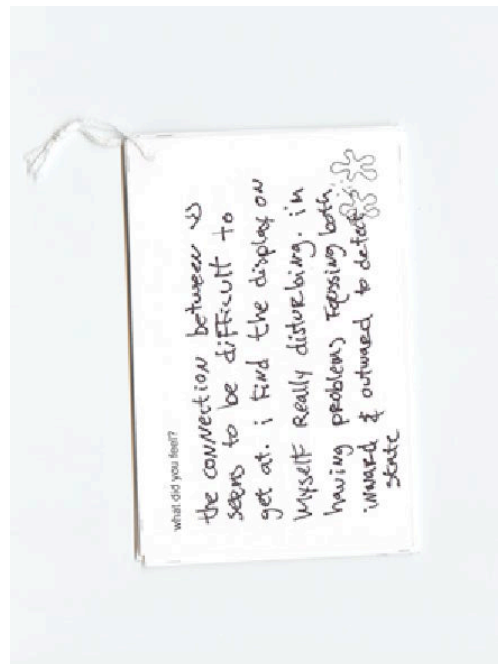 what did you feel?
the connection between us
seems to be difficult to
get at. i find the display on
myself really disturbing. i'm
having problems focussing both
inward & outward to detect
state